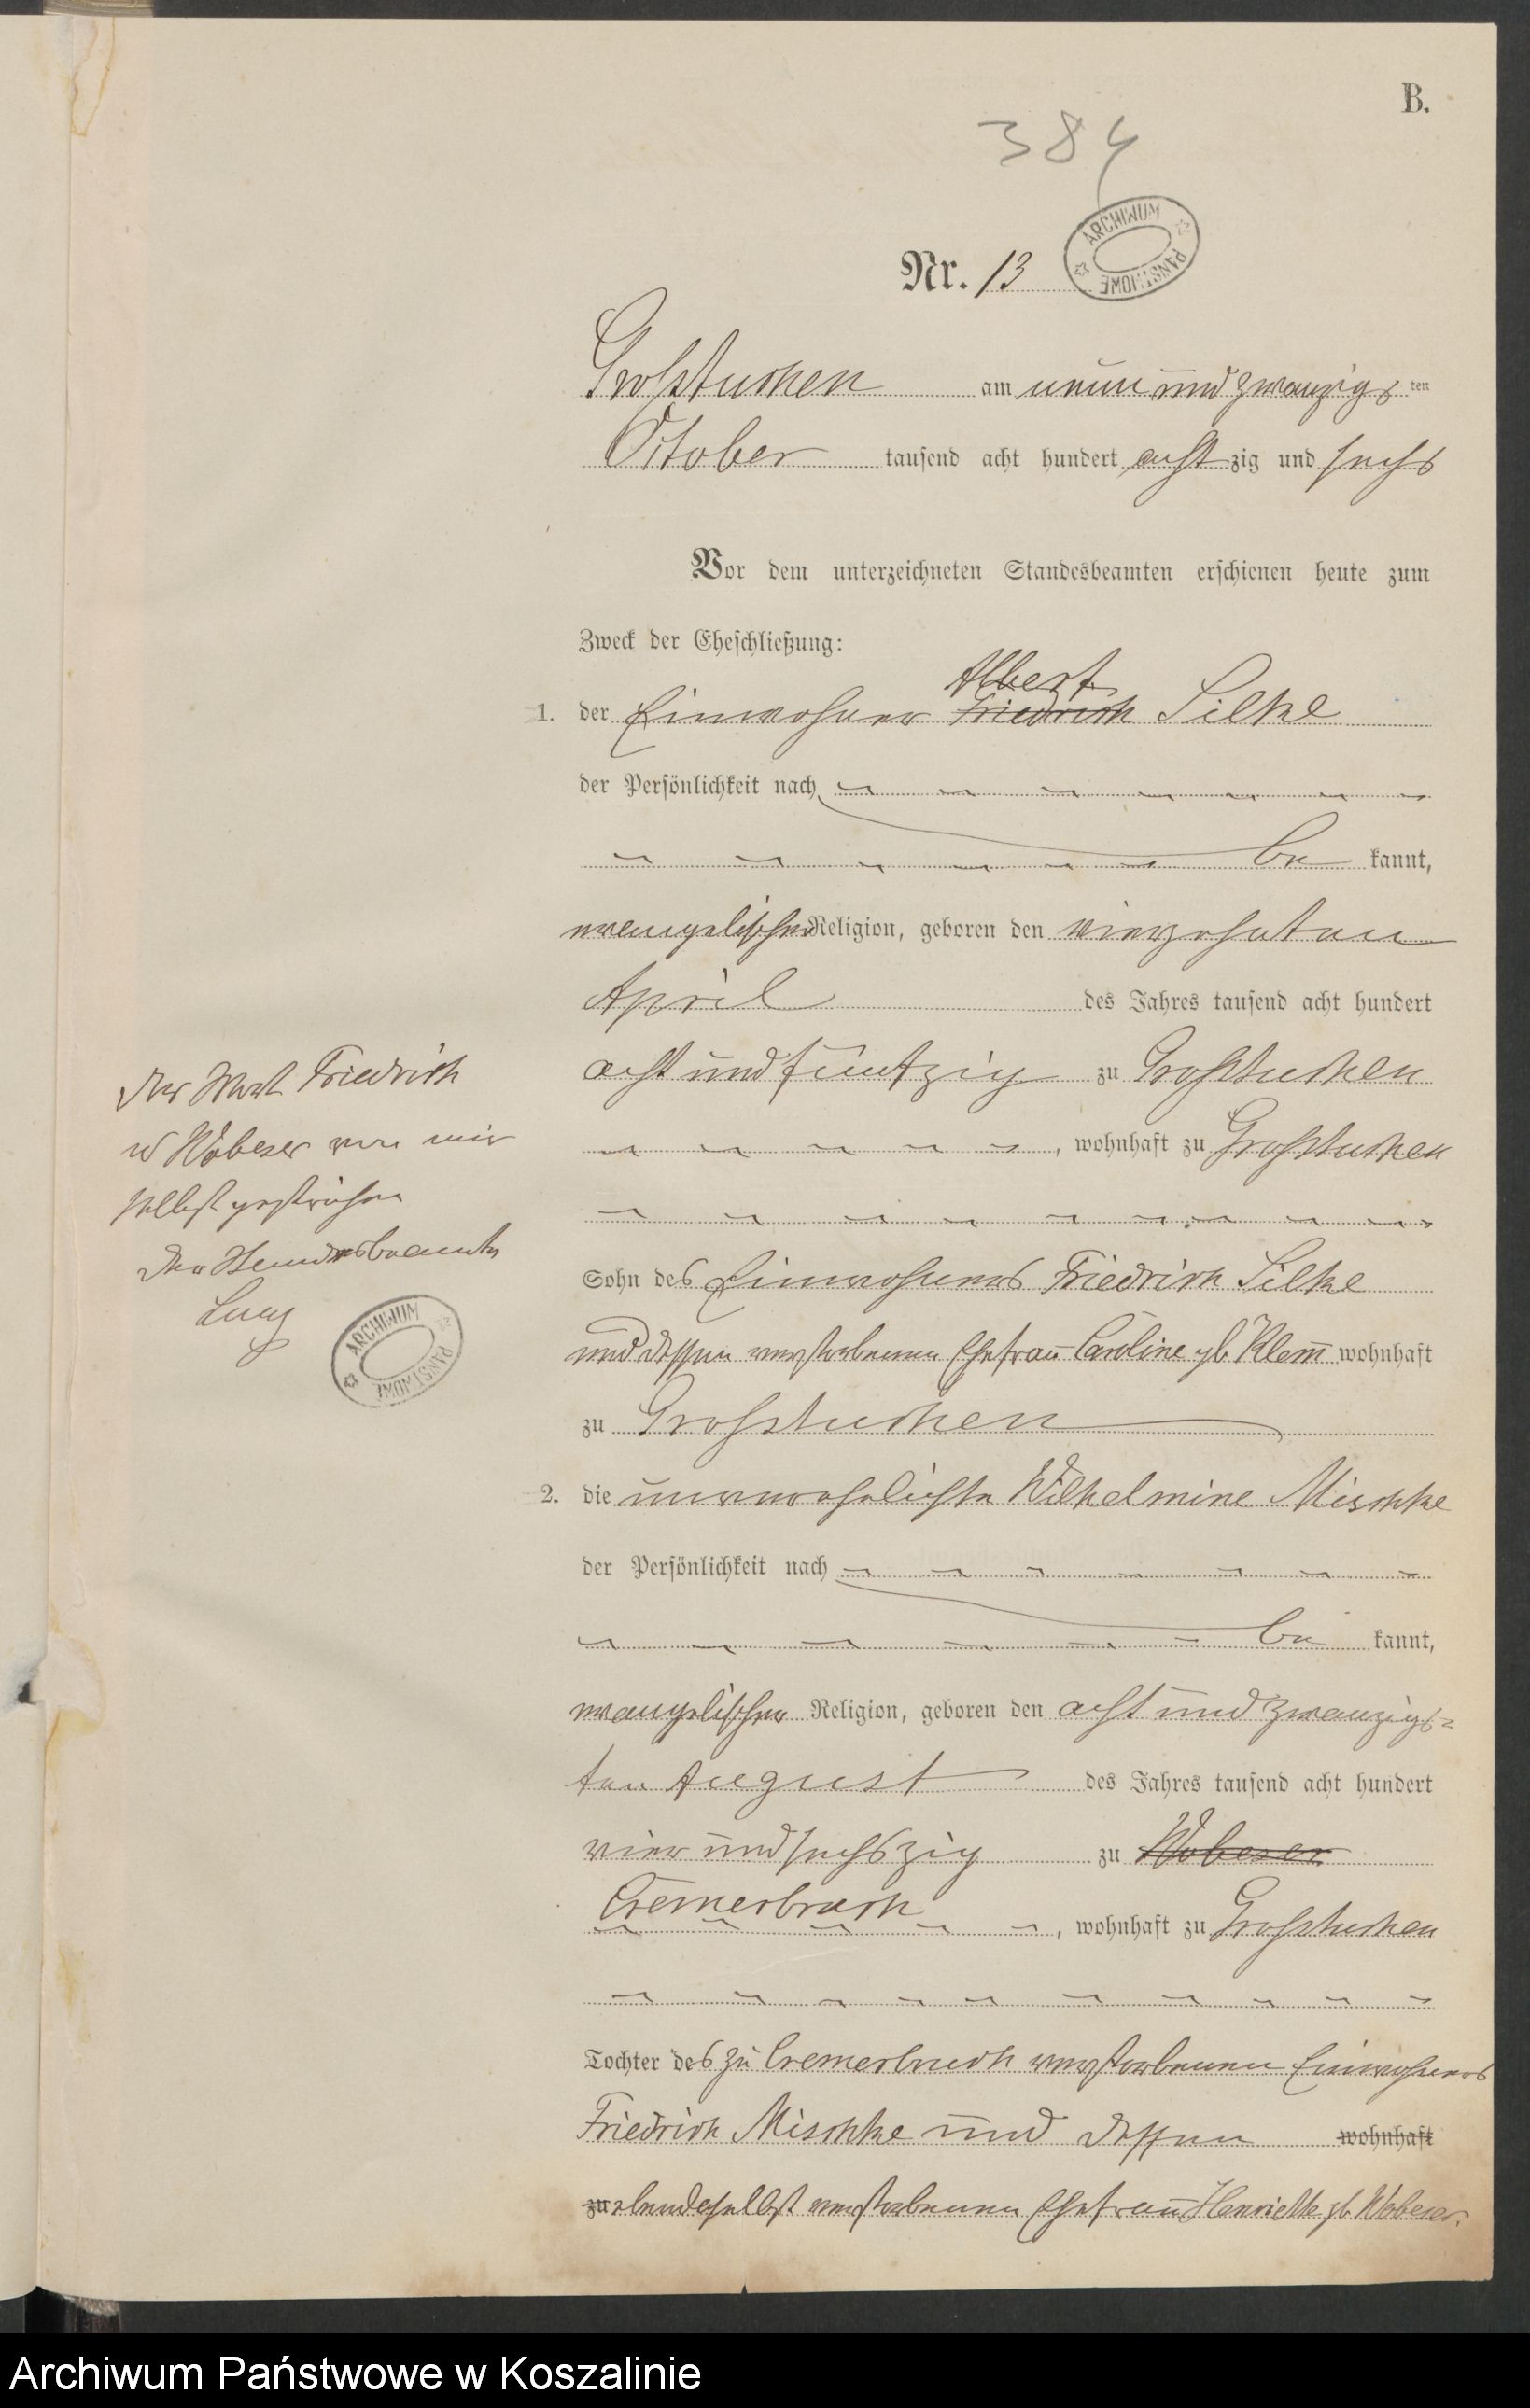 B.
384
ARCHIWUM PAŃSTWOWE
Nr. 13
Großtuchen am neun und zwanzigs ten
October tausend acht hundert acht zig und sechs
Vor dem unterzeichneten Standesbeamten erschienen heute zum
Zweck der Eheschließung:
Albert
1. der Einwohner Friedrich Silke
der Persönlichkeit nach
be kannt,
evangelischer Religion, geboren den vierzehnten
April des Jahres tausend acht hundert
acht und fünfzig zu Großtuchen
, wohnhaft zu Großtuchen
Sohn des Einwohners Friedrich Silke
und dessen verstorbenen Ehefrau Caroline gb Klem̅ wohnhaft
zu Großtuchen
2. die unverehelichte Wilhelmine Mischke
der Persönlichkeit nach
be kannt,
evangelischer Religion, geboren den acht und zwanzigs=
ten August des Jahres tausend acht hundert
vier und sechszig zu Wobeser
Cremerbruch
, wohnhaft zu Großtuchen
Tochter des zu Cremerbruch verstorbenen Einwohners
Friedrich Mischke und dessen wohnhaft
zu ebendaselbst verstorbenen Ehefrau Henriette gb Wobeser.
Das Wort Friedrich
u Wobeser von mir
selbst gestrichen
Der Standesbeamte
ARCHIWUM PAŃSTWOWE
Archiwum Państwowe w Koszalinie